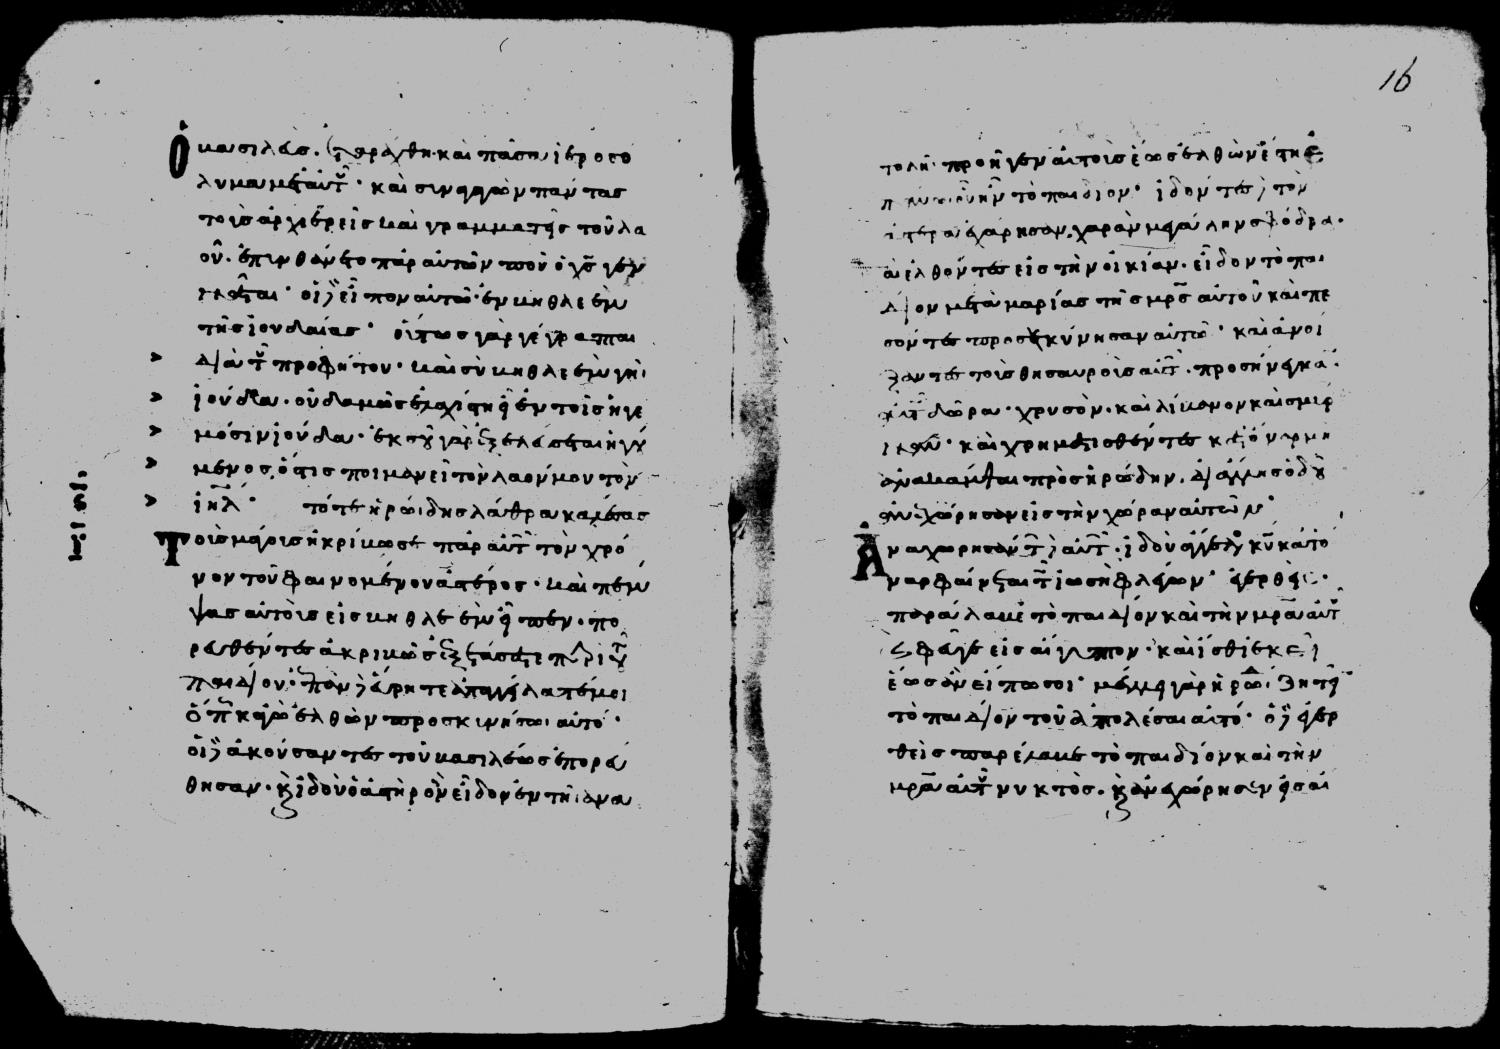 ὁ βασιλεὺς. ἐταράχθη· καὶ πᾶσα ἱεροσο
λυμα μετ αὐτοῦ· καὶ συναγαγὼν πάντας
τοὺς ἀρχιερεῖς καὶ γραμματεῖς τοῦ λα
οῦ· ἐπυνθάνετο παρ αὐτῶν ποῦ ὁ χς γεν
νᾶται· οἱ δὲ εἶπον αὐτῶ· ἐν βηθλεὲμ
τῆς ἰουδαίας· οὕτως γὰρ γέγραπται
διὰ τοῦ προφήτου· καὶ σὺ βηθλεὲμ γῆ
ἰούδα· οὐδαμῶς ἐλαχίστη εἶ ἐν τοῖς ἡγε
μόσιν ἰούδα· ἐκ σοῦ γὰρ ἐξελεύσεται ἡγού
μενος, ὅστις ποιμανεῖ τὸν λαόν μου τὸν
ἰηλ· τότε ἡρώδης λάθρα καλέσας
τοὺς μάγους ἠκρίβωσε παρ αὐτῶν τὸν χρό
νον τοῦ φαινομένου ἀστέρος· καὶ πέμ
ψας αὐτοὺς εἰς βηθλεὲμ εἶπεν· πο
ρευθέντες ἀκριβῶς ἐξετάσατε περὶ τοῦ
παιδίου· ἐπὰν δὲ εὕρητε ἀπαγγείλατέ μοι
ὅπως κἀγὼ ἐλθὼν προσκυνήσω αὐτό·
οἱ δὲ ἀκούσαντες τοῦ βασιλέως ἐπορεύ
θησαν· καὶ ἰδοὺ ὁ ἀστὴρ ὃν εἶδον ἐν τῆ ἀνα
16
τολῆ· προῆγεν αὐτοὺς ἕως ἐλθὼν ἔστη
τὸ παιδίον· ἰδόντες δὲ τὸν
ἀστέρα ἐχάρησαν, χαρὰν μεγάλην σφόδρα·
καὶ ἐλθόντες εἰς τὴν οἰκίαν· εἶδον τὸ παι
δίον μετὰ μαρίας τῆς μρς αὐτοῦ καὶ πε
σόντες προσεκύνησαν αὐτῶ· καὶ ἀνοί
ξαντες τοὺς θησαυροὺς αὐτῶν· προσήνεγκαν
αὐτῶ δῶρα· χρυσὸν· καὶ λίβανον καὶ σμύρ
ναν· καὶ χρηματισθέντες κατ ὄναρ μὴ
ἀνακάμψαι πρὸς ἡρώδην, δι ἄλλης ὁδοῦ
ἀνεχώρησαν εἰς τὴν χώραν αὐτῶν·
ἀναχωρησάντων δὲ αὐτῶν· ἰδοὺ ἄγγελος κυ κατ ὄ
ναρ φαίνεται τῶ ἰωσὴφ λέγων· ἐγερθεὶς
παράλαβε τὸ παιδίον καὶ τὴν μρα αὐτοῦ
καὶ φεῦγε εἰς αἴγυπτον· καὶ ἴσθι ἐκεῖ
ἕως ἂν εἴπω σοι· μέλλει γὰρ ἡρώδ· ζητεῖν
τὸ παιδίον τοῦ ἀπολέσαι αὐτό· ὁ δὲ ἐγερ
θεὶς παρέλαβε τὸ παιδίον καὶ τὴν
μρα αὐτοῦ νυκτὸς· καὶ ἀνεχώρησεν εἰς αἴ